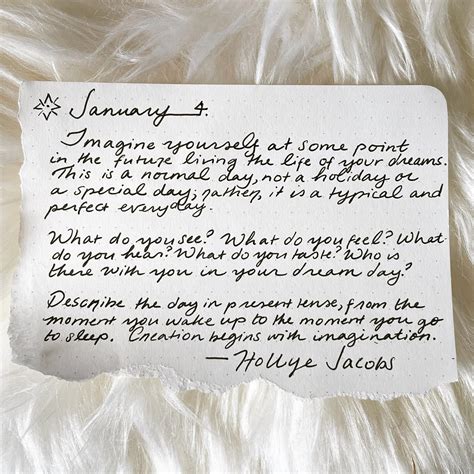 January 4.
Imagine yourself at some point
in the future living the life of your dreams.
This is a normal day, not a holiday or
a special day; rather, it is a typical and
perfect everyday.
What do you see? What do you feel? What
do you hear? What do you taste? Who is
there with you in your dream day?
Describe the day in present tense, from the
moment you wake up to the moment you go
to sleep. Creation begins with imagination.
— Hollye Jacobs